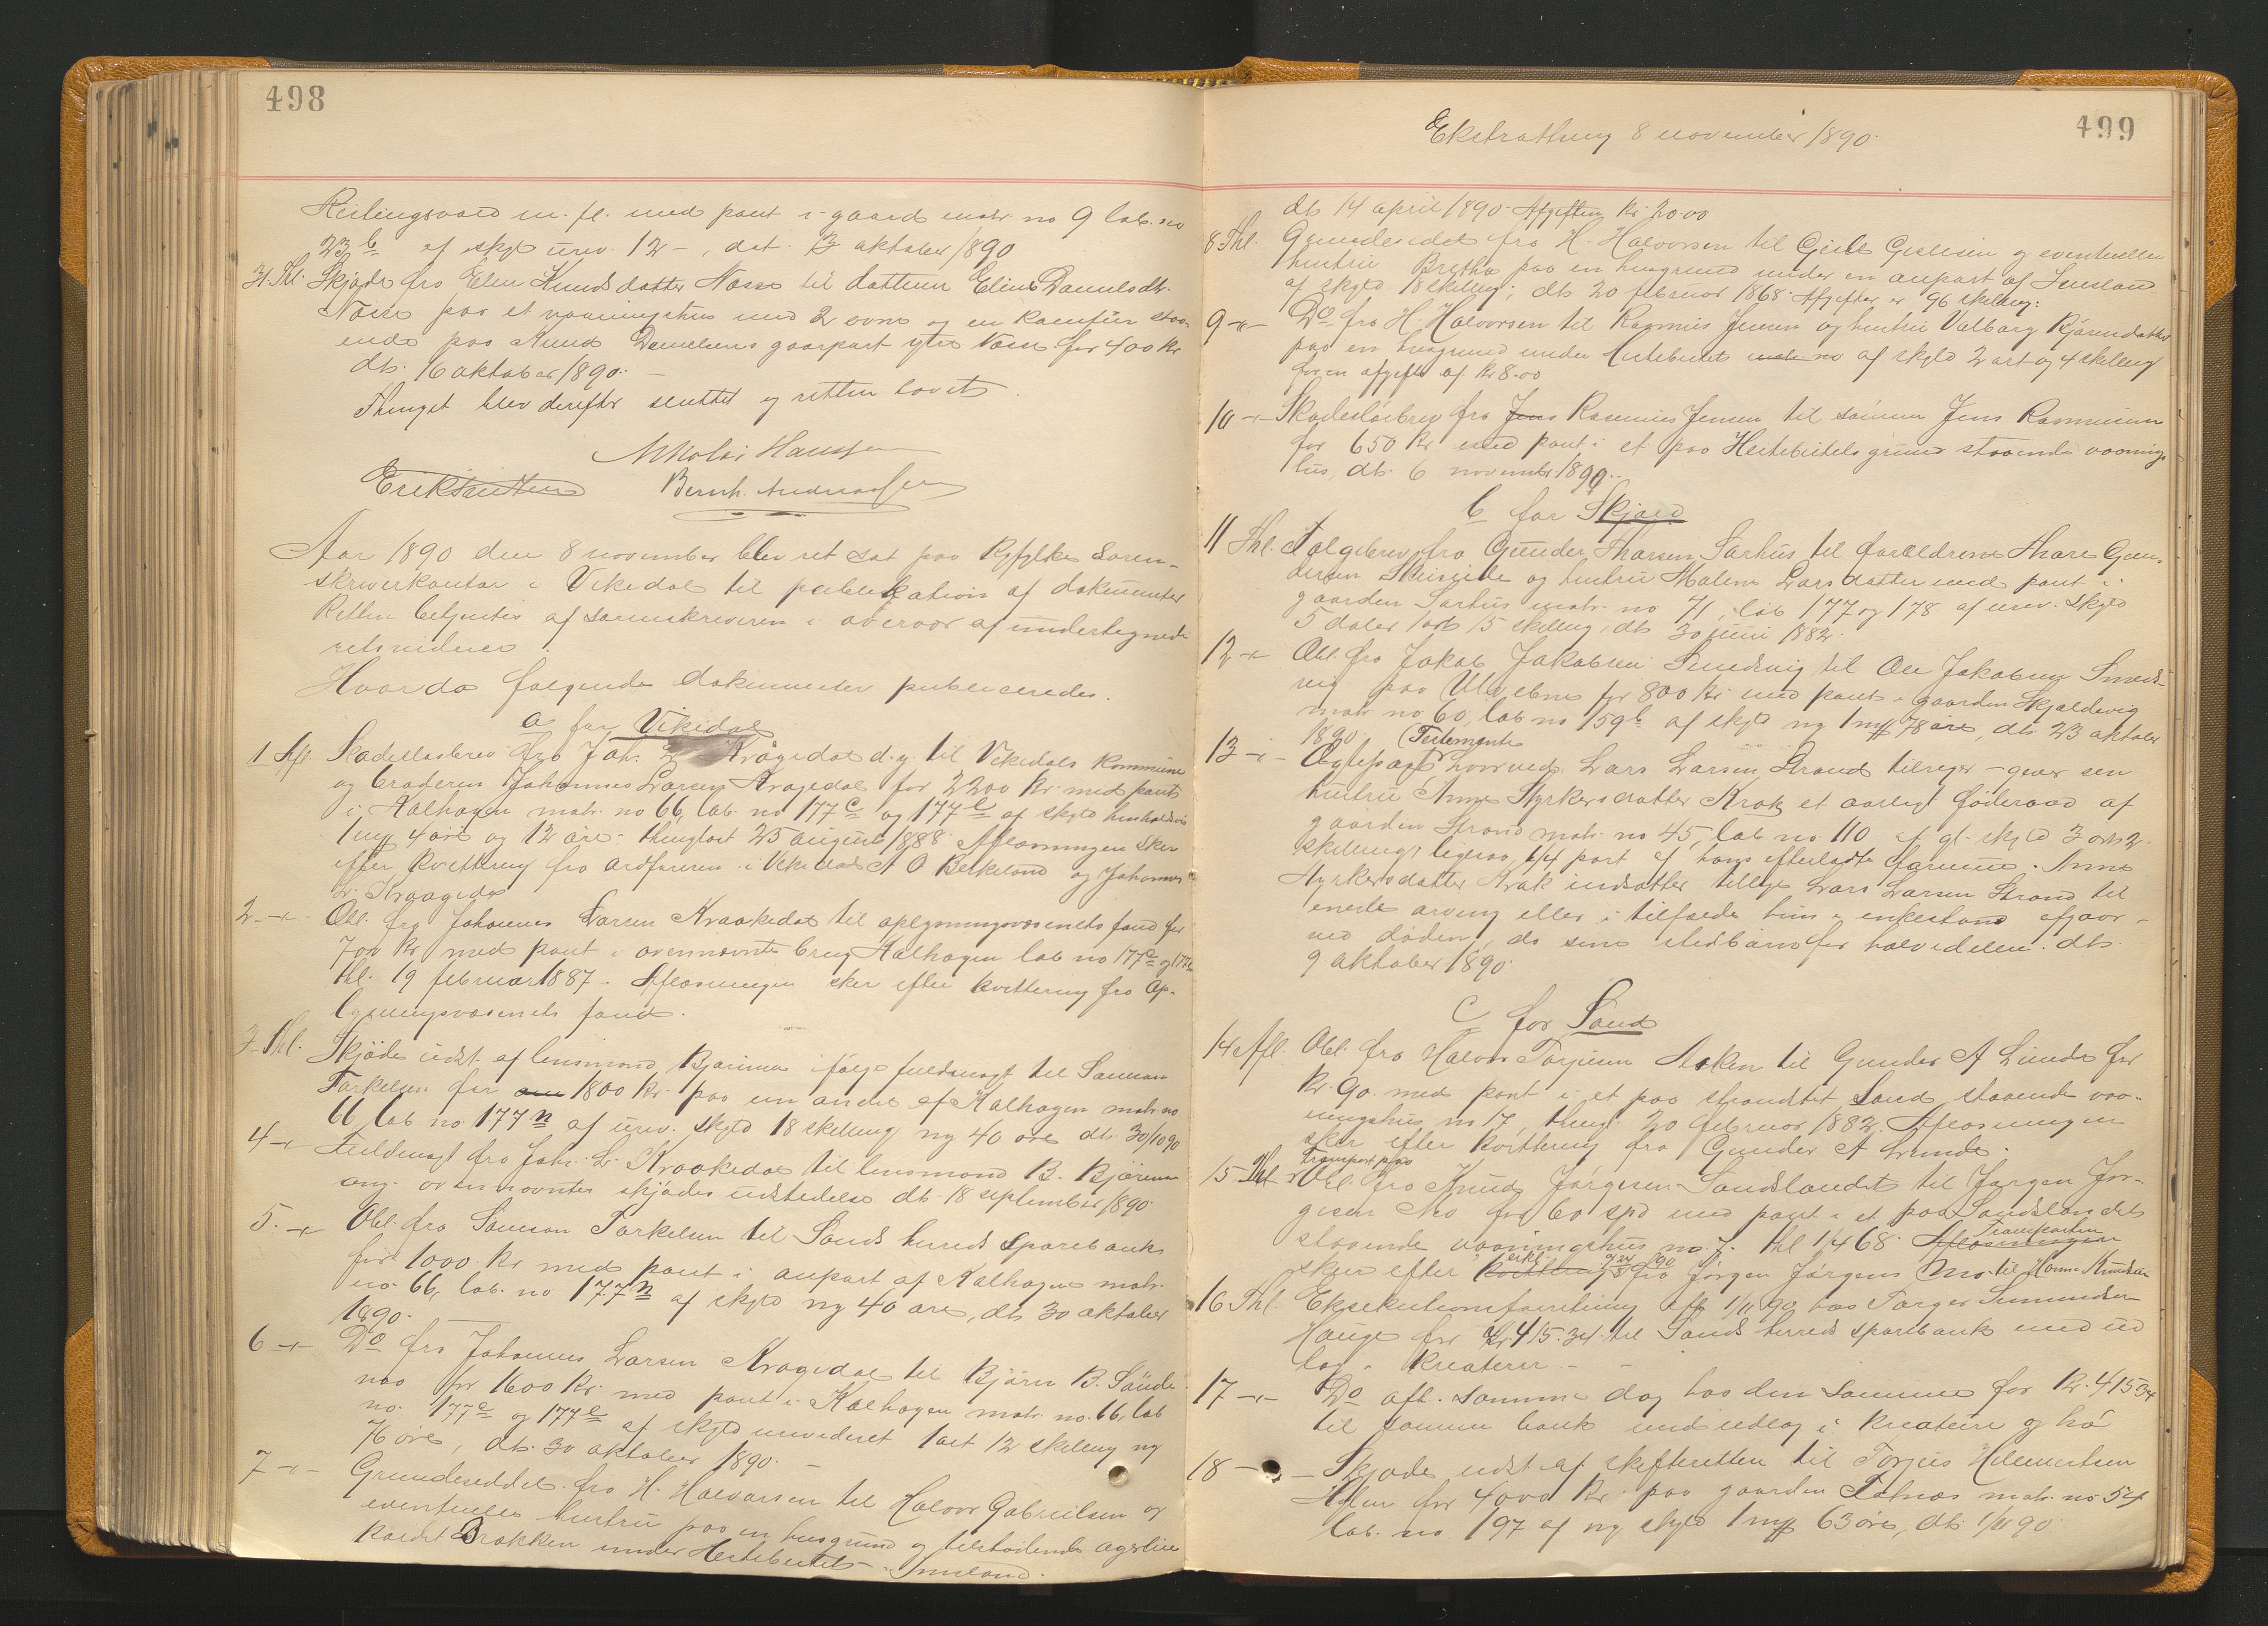 498
Reilingsvaad m. fl. med pant i gaard matr no 9 lab. no
23b af skyld urev. 12 -, dat. 13 oktober 1890
31. Thl. Skjøde fra Elen Knudsdatter Næsse til datteren Eline Danielsdtr.
Næsse paa et vaaningshus med 2 ovne og en komfür staa-
ende paa Knud Danielsens gaarpart ytre Næsse for 400 kr
dt. 16 oktober 1890. -
Thinget blev derefter sluttet og retten hævet.
Nikolai Hanssen
Erik Bernh. Andreassen
Aar 1890 den 8 november blev ret sat paa Ryfylke Soren-
skriverkontor i Vikedal til publikation af dokumenter
Retten betjentes af sorenskriveren i overvær af undertegnede
retsvidner.
Hvorda følgende dokumenter publiceredes.
a for Vikedal
1 Afl. Skadesløsbrev fra Joh. L. Krågedal d. y. til Vikedals kommune
og broderen Johannes Larsen Kragedal for 2200 kr med pant
i Kalhagen matr. no 66, lab. no 177c og 177l af skyld henholdsvis
1 mk 4 øre og 12 øre - thinglæst 25 august 1888. Aflæsningen sker
efter kvittering fra ordføreren i Vikedal A O Berkeland og Johannes
L. Kraagedal
2 -"- Obl. fra Johannes Larsen Kraakedal til oplysningsvæsenets fond for
700 kr med pant i ovennævnte brug Kalhagen lab no 177c og 177l
thl. 19 februar 1887. Aflæsningen sker efter kvittering fra Op-
lysningsvæsenets fond.
3 Thl. Skjøde udst. af lensmand Bjørnen ifølge fuldmagt til Samson
Torkelsen for 1800 kr. paa en andel af Kalhagen matr no
66 lab no 177n af urev. skyld 18 skilling ny 40 øre dt. 30/10 90
4 -"- Fuldmagt fra Joh. L. Kraakedal til lensmand B. Bjørnen
ang. ovennævnte skjødes udstedelse dt. 18 september 1890.
5. -"- Obl. fra Samson Torkelsen til Sands herreds Sparebank
for 1000 kr med pant i anpart af Kalhagen matr.
no. 66, lab. no 177n af skyld ny 40 øre, dt. 30 oktober
1890.
6 -"- Do fra Johannes Larsen Kragedal til Bjørn B. Sønde-
naa for 1600 kr. med pant i Kalhagen matr. no. 66, lab
no. 177c og 177l af skyld urevideret 1 ort 12 skilling ny
76 øre, dt. 30 oktober 1890. -
7 -"- Grundseddel fra H. Halvorsen til Halvor Gabrielsen og
eventuelle hustru paa en husgrund og tilstødende agerlære
kaldt Brakken under Hestebeitet - Imsland.
Ekstrathing 8 november 1890.
499
dt. 14 april 1890. Afgiften kr. 20.00
8 Thl. Grundseddel fra H. Halvorsen til Gisle Gislesen og eventuelle
hustru Brytha paa en husgrund under en anpart af Imsland
af skyld 18 skilling; dt. 20 februar 1868. Afgiften er 96 skilling.
9 -"- Do fra H. Halvorsen til Rasmus Jensen og hustru Valborg Bjørnsdatter
paa en husgrund under Hestebeitet matr. no af skyld 2 ort og 4 skilling
for en afgift af kr 8.00
10 -"- Skadesløsbrev fra Jens Rasmus Jensen til sønnen Jens Rasmussen
for 650 kr med pant i et paa Hestebeitets grund staaende vaanings
hus, dt. 6 november 1890.
b for Skjold
11 Thl. Følgebrev fra Gunder Tharsen Sørhus til forældrene Thore Gun-
dersen Skiseide og hustru Malene Larsdatter med pant i
gaarden Sørhus matr. no 41, lab 177 og 178 af urev. skyld
5 daler 1 ort 15 skilling, dt. 30 juni 1882.
12 -"- Obl. fra Jakob Jakobsen Smedsvig til Ole Jakobsen Smeds-
vig paa for 800 kr med pant i gaarden Skjoldevig
matr. no 60, lab no 159b af skyld ny 1 mk 78 øre, dt. 23 oktober
1890.
13 -"- Testamente hvorved Lars Larsen Strand tilsiger - giver sin
hustru Anna Styrkersdatter Krak et aarligt føderaad af
gaarden Strand matr. no 45, lab no. 110 af gl. skyld 3 ort 2
skilling, ligesaa, 1/4 part af hans efterladte formue. Anna
Styrkersdatter Krak indsætter tillige Lars Larsen Strand til
eneste arving eller i tilfælde hun i enkestand afgaar
ved døden, da sine stedbørn for halvdelen. dt.
9 oktober 1890.
c for Sand
14 Afl. Obl. fra Halvor Torjusen Asken til Gunder A Lunde for
kr. 90. med pant i et paa strandstet Sand staaende vaa-
ningshus no 17, thingl. 20 februar 1882. Aflæsningen
sker efter kvittering fra Gunder A Lunde.
Transport paa
15 Thl. Obl. fra Knud Jørgesen Sandslandet til Jørgen Jør-
gesen Mo for 60 spd med pant i et paa Sandslandet
staaende vaaningshus no. 7. thl 1/4 68. Aflæsningen Transporten
sker efter kvittering fra Jørgen Jørgens Mo. til Hanna Knudsen
16 Thl. Eksekutionsforretning afh 1/11 90 hos Torger Simundsen
Hauge for kr 415.34 til Sands herreds sparebank med ud
læg i kreaturer. -
17 -"- Do afh. samme dag hos den samme for kr. 415 34
til samme bank med udlæg i kreature og hø
18 -"- Skjøde udst. af skifteretten til Torjus Helmertsen
for 4000 kr. paa gaarden Tatnes matr. no 54
lab. no 197 af ny skyld 1 mk 63 øre, dt. 1/11 90.